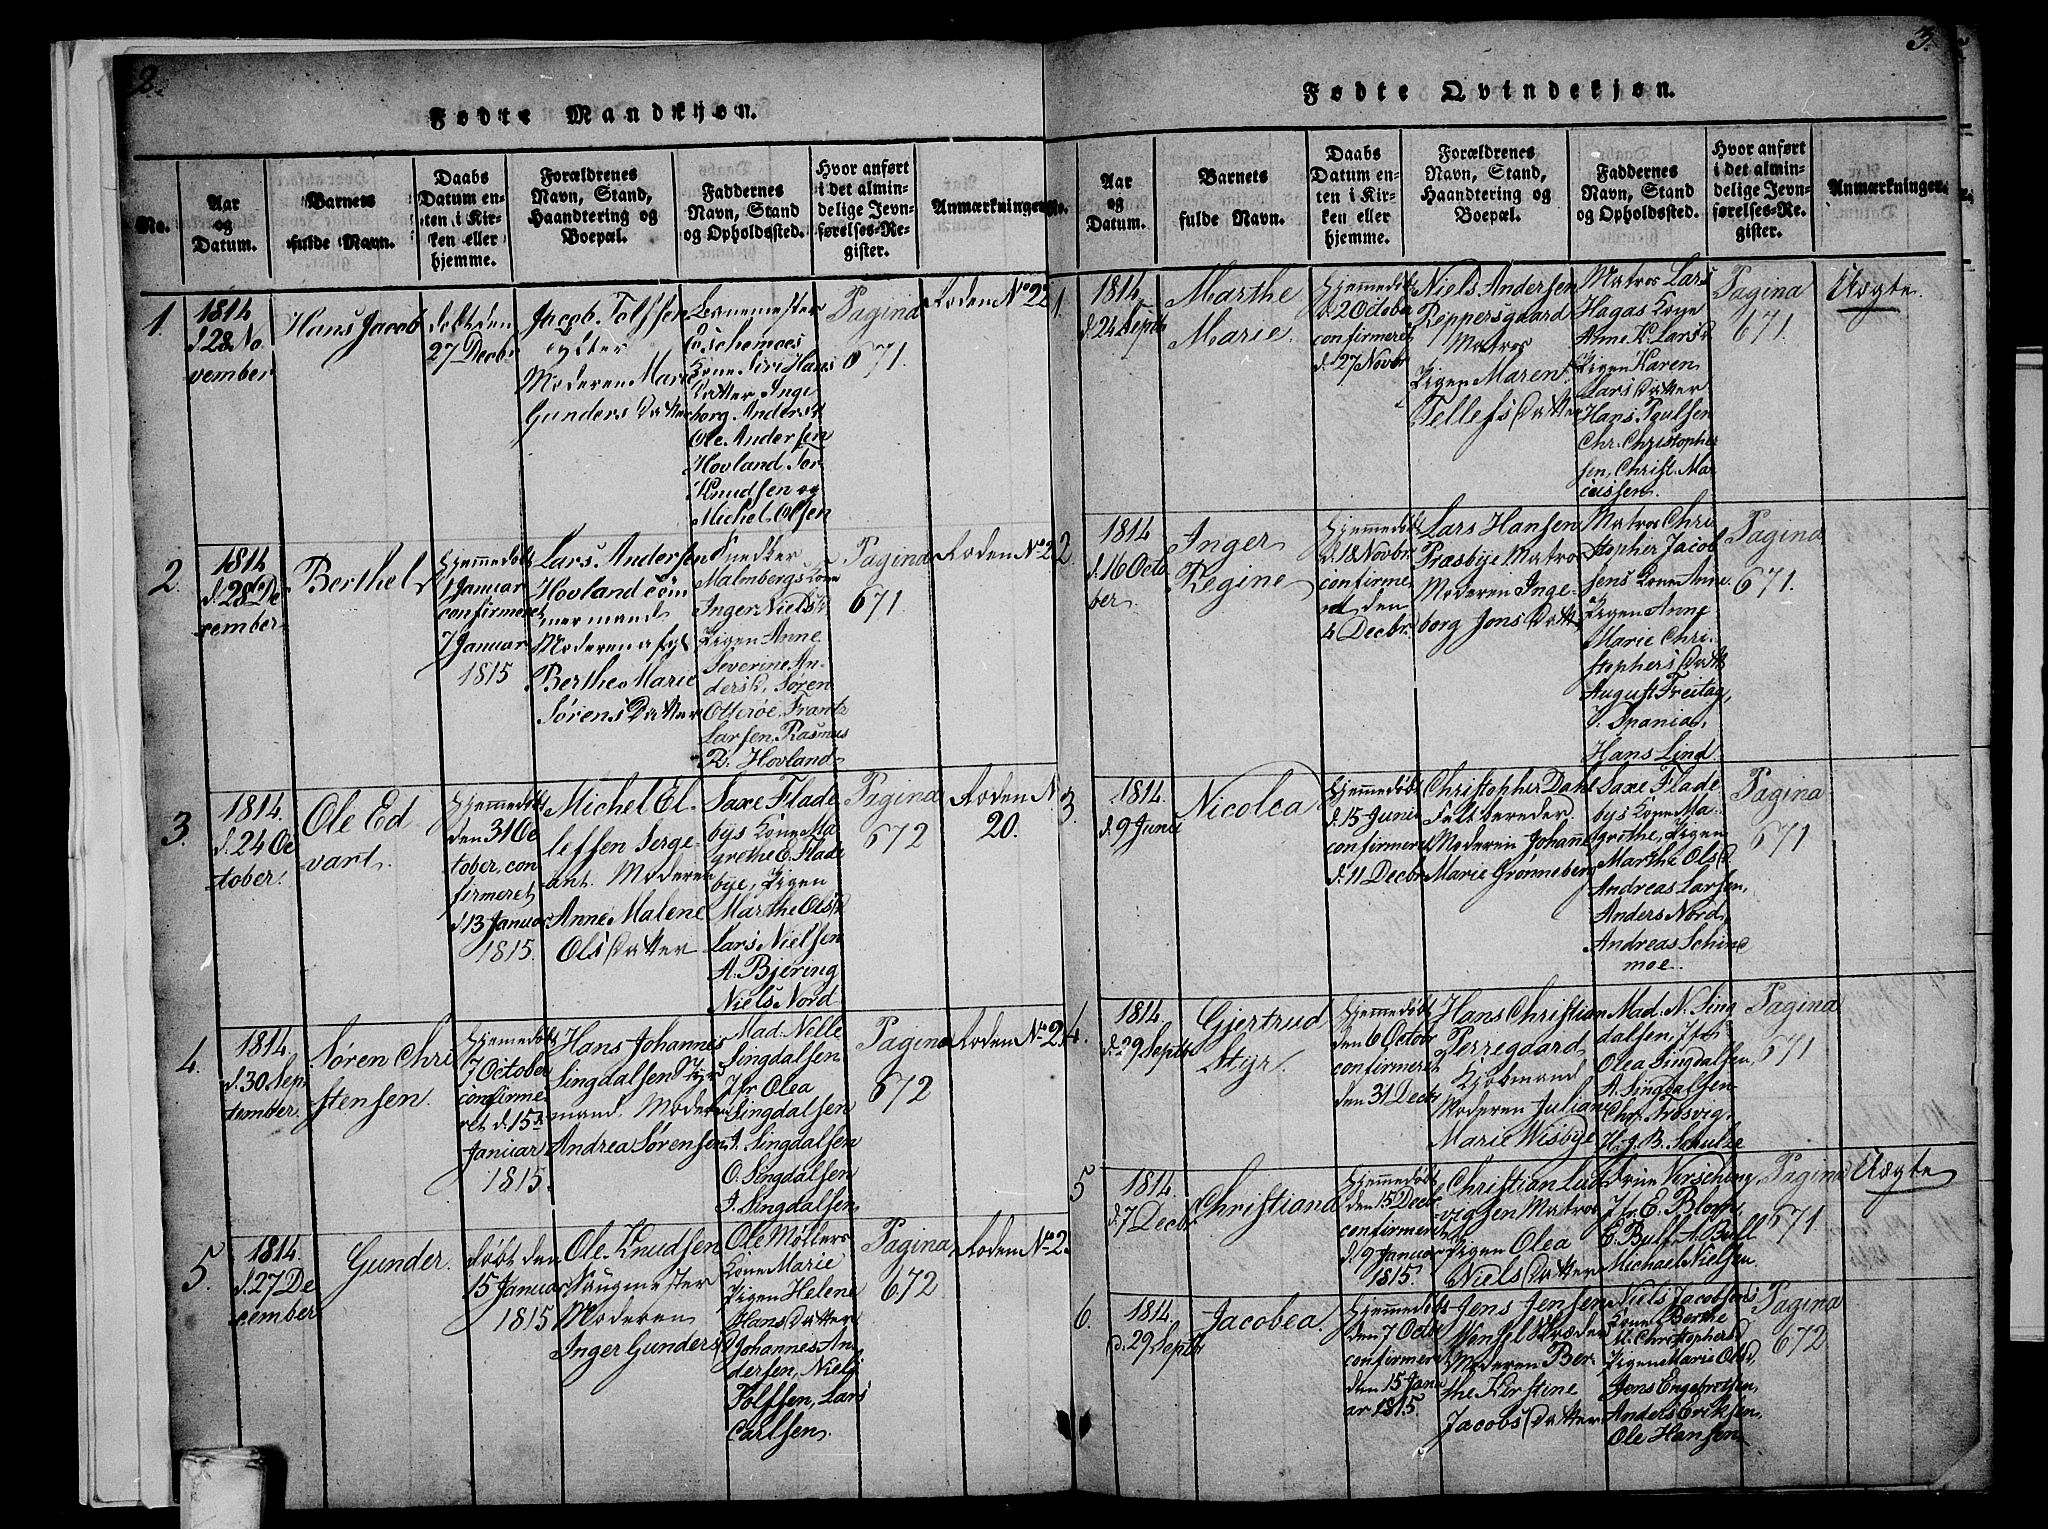 2.
Fødte Mandkjøn.
No.
Aar
og
Datum.
Barnets
fulde Navn.
Daabs
Datum en-
ten i Kir-
ken eller
hjemme.
Forældrenes
Navn, Stand,
Haandtering og
Boepæl.
Faddernes
Navn, Stand
og Opholdssted.
Hvor anført
i det almin-
delige Jevn-
førelses-Re-
gister.
Anmærkninger.
1.
1814
d. 28 No
vember
Hans Jacob
døbt den
27 Decbr
Jacob Tolfsen
Moderen Marie
Gunders Datter
Kone Siri Hans
Datter, Inge
borg Andersd
Ole Andersen
Hovland Tor
Knudsen og
Michel Olsen
Pagina
671.
Roden No 22
2.
1814
d. 28 De
cember
Berthel
Hjemmedøbt
1 Januar
confirmeret
7 Januar
1815
Lars Andersen
Hovland Töm
mermand
Moderen
Berthe Marie
Sørens Datter
Snedker
Malmbergs Kone
Inger Niels D
Pigen Anne
Severine An-
dersd, Søren
Otterøe, Frantz
Larsen, Rasmus
R. Hovland
Pagina
671
Roden No 22
3.
1814.
d. 24 Oc
tober.
Ole Ed
vart.
Hjemmedøbt
den 31 Oc
tober, con
firmeret
d. 13 Januar
1815.
Michel El
leffsen Serge-
ant. Moderen
Anne Malene
Ols Datter
Saxe Flade
byes Kone Ma
grethe E. Flade
bye, Pigen
Marthe Olsd
Lars Nielsen
A. Bjering
Niels Nord
Pagina
672
Roden N
20.
4.
1814.
d. 30 Sep
tember.
Søren Chri
stensen.
Hjemmedøbt
7 October
confirme
ret d. 15n
Januar
1815.
Hans Johannes
Singdalsen Styr
mand. Moderen
Andrea Sørensen
Mad. Nelle
Singdalsen
Jfr Olea
Singdalsen
A. Singdalsen
O. Singdalsen
J. Singdalsen
Pagina
672
Roden No 2
5.
1814.
d. 27 De
cember
Gunder.
døbt den
15 Januar
1815
Ole Knudsen
Saugmester
Moderen
Inger Gundersd
Ole Møllers
Kone Marie
Pigen Helene
Hans Datter
Johannes An
dersen, Niels
Tolfsen, Lars
Carlsen.
Pagina
672
Roden No 2
3.
Fødte Qvindekjøn.
No.
Aar
og
Datum.
Barnets
fulde Navn.
Daabs
Datum en-
ten i Kir-
ken eller
hjemme.
Forældrenes
Navn, Stand,
Haandtering og
Boepæl.
Faddernes
Navn, Stand
og Opholdssted.
Hvor anført
i det almin-
delige Jevn-
førelses-Re-
gister.
Anmærkninger.
1.
1814.
d. 24 Septbr
Marthe
Marie.
Hjemmedøbt
d 2 October
confirmeret
d. 27 Novbr
Niels Andersen
Reppersgaard
Matros
Pigen Maren
Tellefs Datter
Matros Lars
Hagas Kone
Anne K. Larsd
Pigen Karen
Lars Datter
Hans Poulsen
Chr. Christopher
sen, Christ. Mar
cussen.
Pagina
671.
Uægte.
2
1814
d. 16 Octo
ber.
Inger
Regine
Hjemmedøbt
d. 18 Novbr.
confirme
ret den
4 Decbr.
Lars Hansen
Præsbye Matros
Moderen Inge-
borg Jons Datter
Matros Chri
stopher Jacob
sens Kone Anne
Pigen Anne
Marie Chri-
stophers Datt
August Freitag,
J. Spania,
Hans Lind
Pagina
671.
3.
1814.
d. 9 Junii
Nicolea
Hjemmedøbt
d. 15 Junii
confirmeret
d. 11 Decbr
Christopher Dahl
Feltbereder.
Moderen Johanne
Marie Grønneberg
Saxe Flade
byes Kone Ma-
grethe, Pigen
Marthe Olsd.
Andreas Larsen,
Anders Nord,
Andreas Schine
moe.
Pagina
671
4.
1814.
d. 29 Septbr
Gjertrud
Styr.
Hjemmedøbt
den 6 Octobr
confirmeret
den 31 Decbr
Hans Christian
Perregaard
Kjøbmand
Moderen Juliane
Marie Wisbye
Mad. N. Sing
dalsen, Jfr
Olea Singdalsen,
A. Singdalsen
Chr. Arbsvig,
H. J. B. Schulze
Pagina
671
5
1814.
d. 7 Decbr.
Christiana
Hjemmedøbt
den 15 Decbr
confirmeret
d. 9 Januar
1815.
Christian Lud
vigsen Matros
Pigen Olea
Niels Datter
Jfr. E. Blom,
E. Bull, A. Bull
Michael Nielsen
Pagina
671.
Uægte
6.
1814.
d. 29 Septbr
Jacobea.
Hjemmedøbt
den 7 Octob
confirmeret
den 15 Janu
ar 1815.
Jens Jensen
Wensel Skræder
Moderen Ber-
the Kirstine
Jacobs Datter
Niels Jacobsens
Kone Berthe
M. Christophersd
Pigen Marie Olsd,
Jens Engebretsen,
Anders Eriksen,
Ole Hansen
Pagina
672